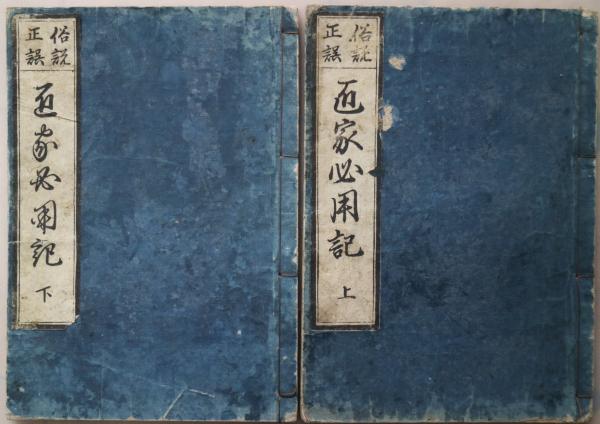 俗説
正誤
匠家必用記
上
俗説
正誤
匠家必用記
下